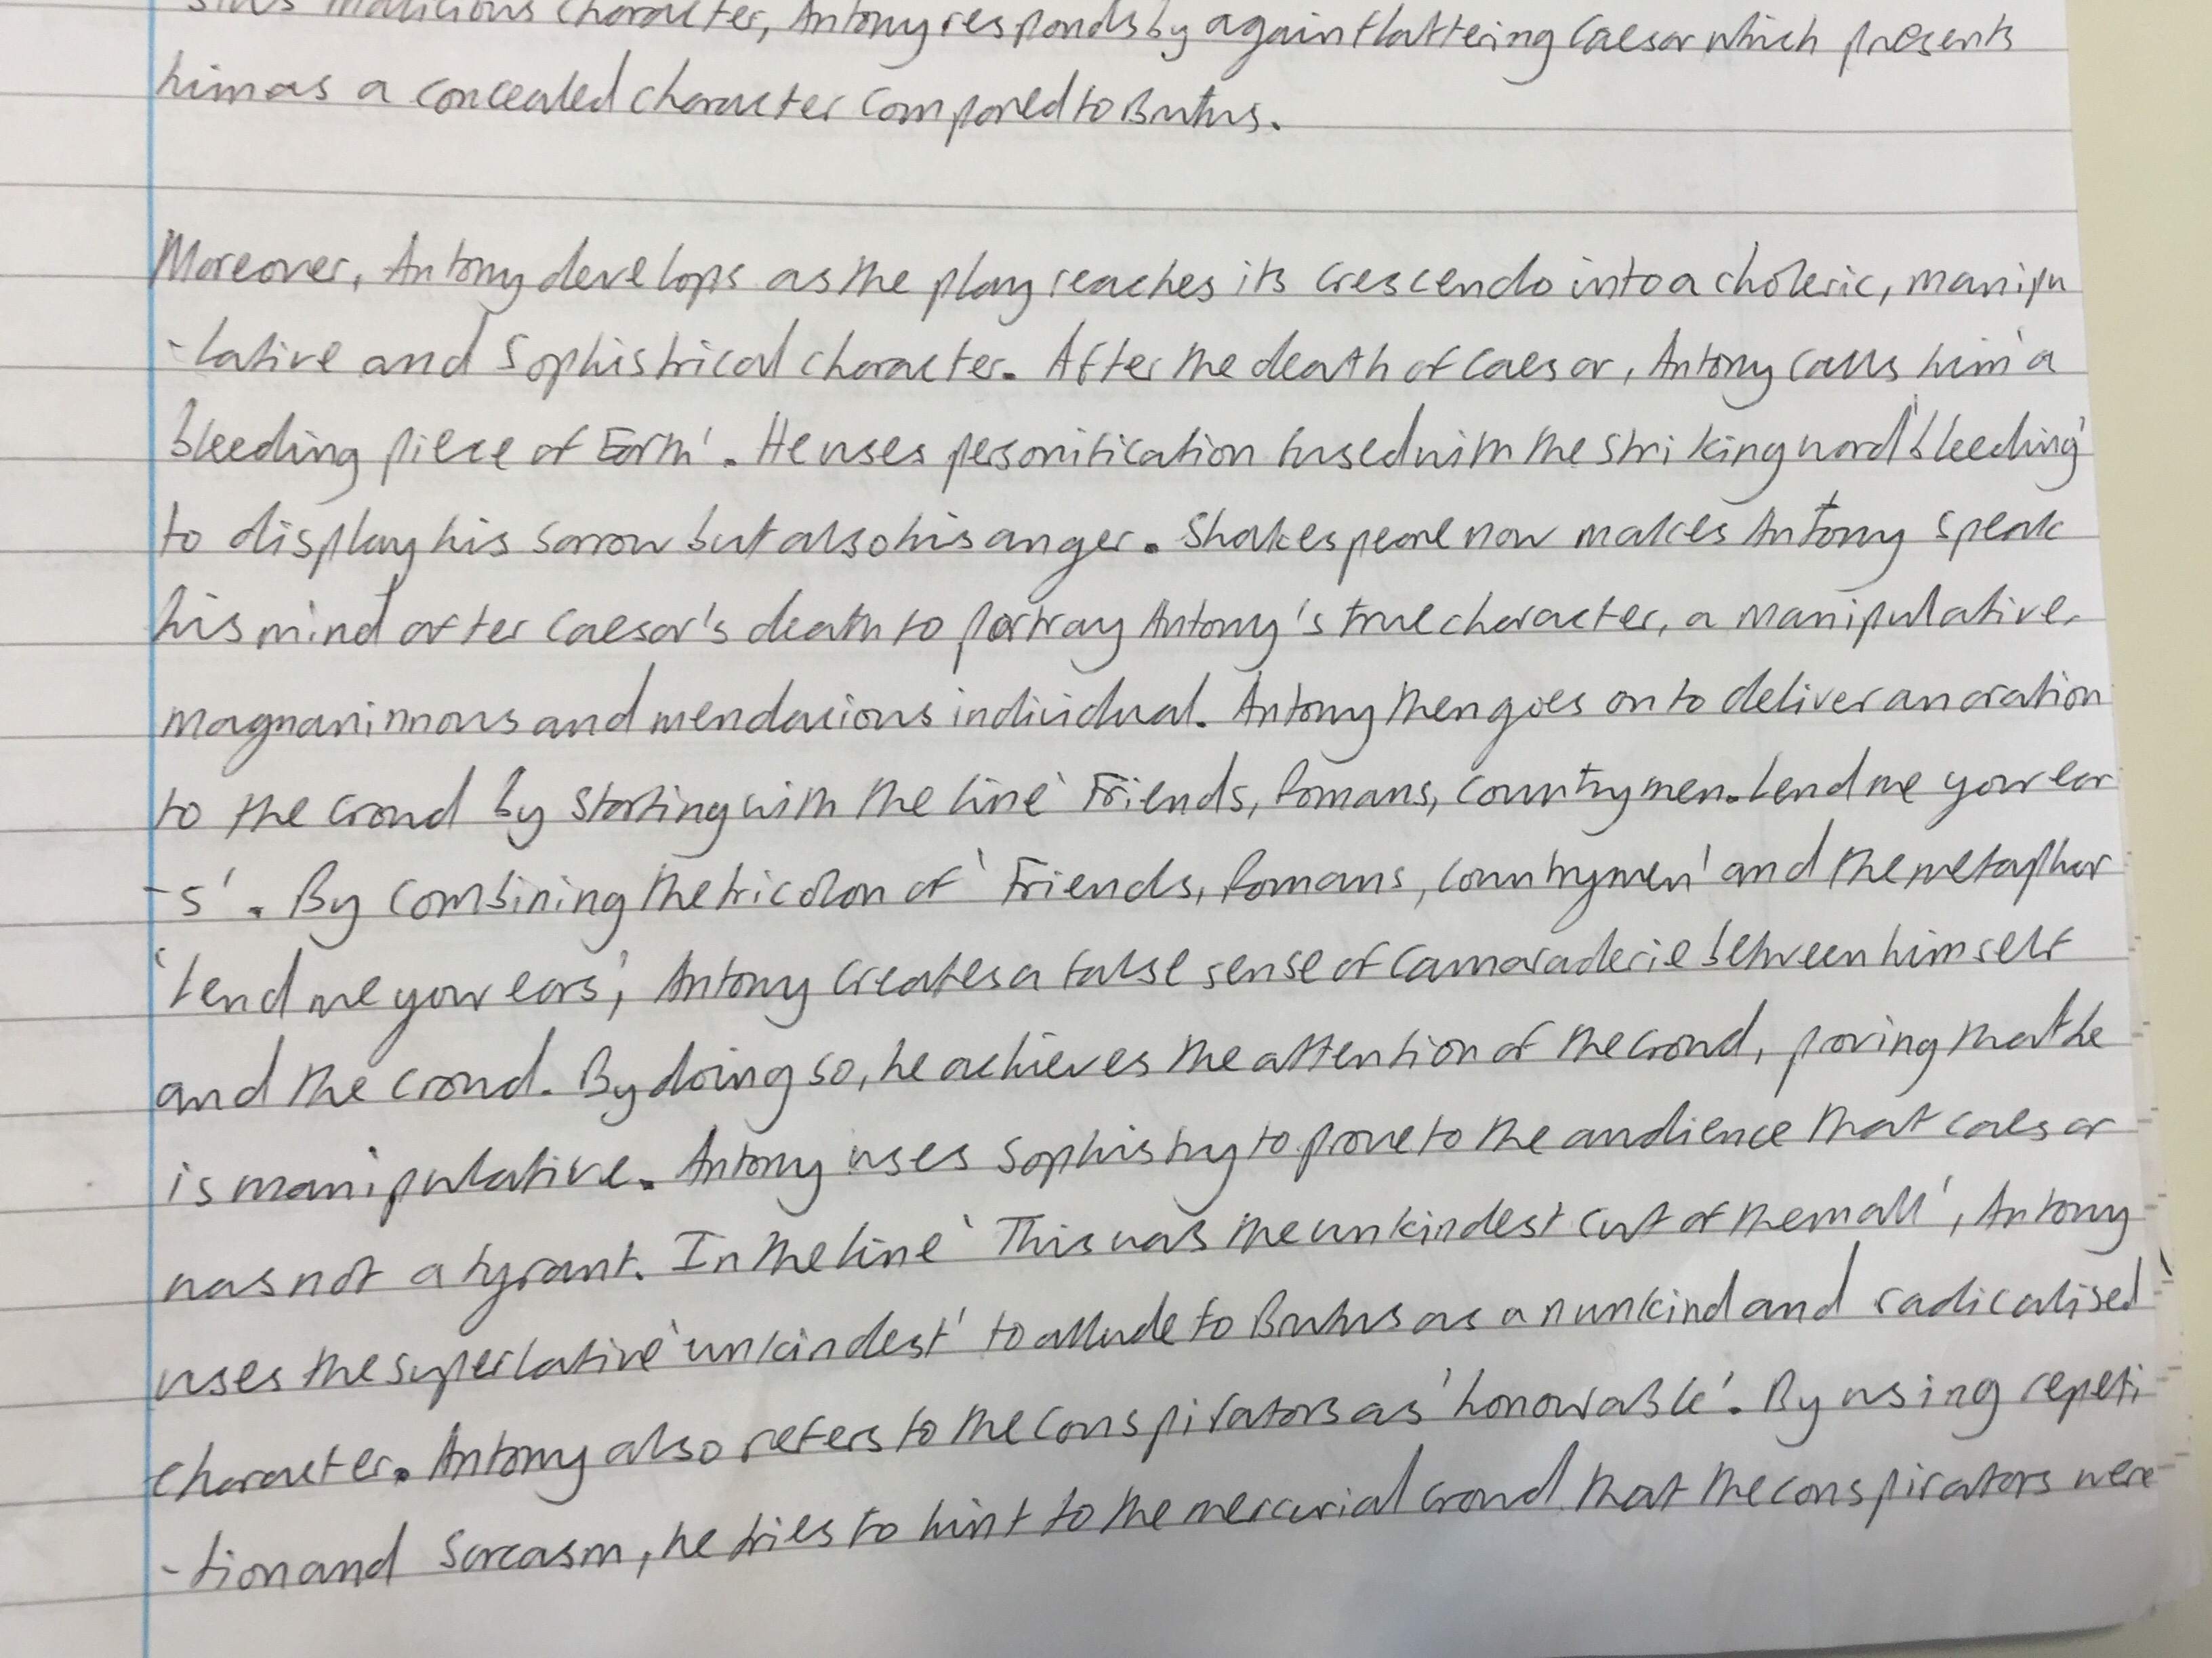 malicious character, Antony responds by again flattering Caesar which presents
him as a concealed character compared to Brutus.
Moreover, Antony develops as the play reaches its crescendo into a choleric, manipu
-lative and sophistrical character. After the death of Caesar, Antony calls him 'a
bleeding piece of Earth'. He uses personification fused with the striking word 'bleeding'
to display his sorrow but also his anger. Shakespeare now makes Antony speak
his mind after Caesar's death to portray Antony's true character, a manipulative,
magnanimous and mendacious individual. Antony then goes on to deliver an oration
to the crowd by starting with the line 'Friends, Romans, countrymen. Lend me your ear
-s'. By combining the tricolon of 'Friends, Romans, countrymen' and the metaphor
'lend me your ears', Antony creates a false sense of camaraderie between himself
and the crowd. By doing so, he achieves the attention of the crowd, proving that he
is manipulative. Antony uses sophistry to prove to the audience that Caesar
was not a tyrant. In the line 'This was the unkindest cut of them all', Antony
uses the superlative 'unkindest' to allude to Brutus as an unkind and radicalised
character. Antony also refers to the conspirators as 'honourable'. By using repeti
-tion and sarcasm, he tries to hint to the mercurial crowd that the conspirators were